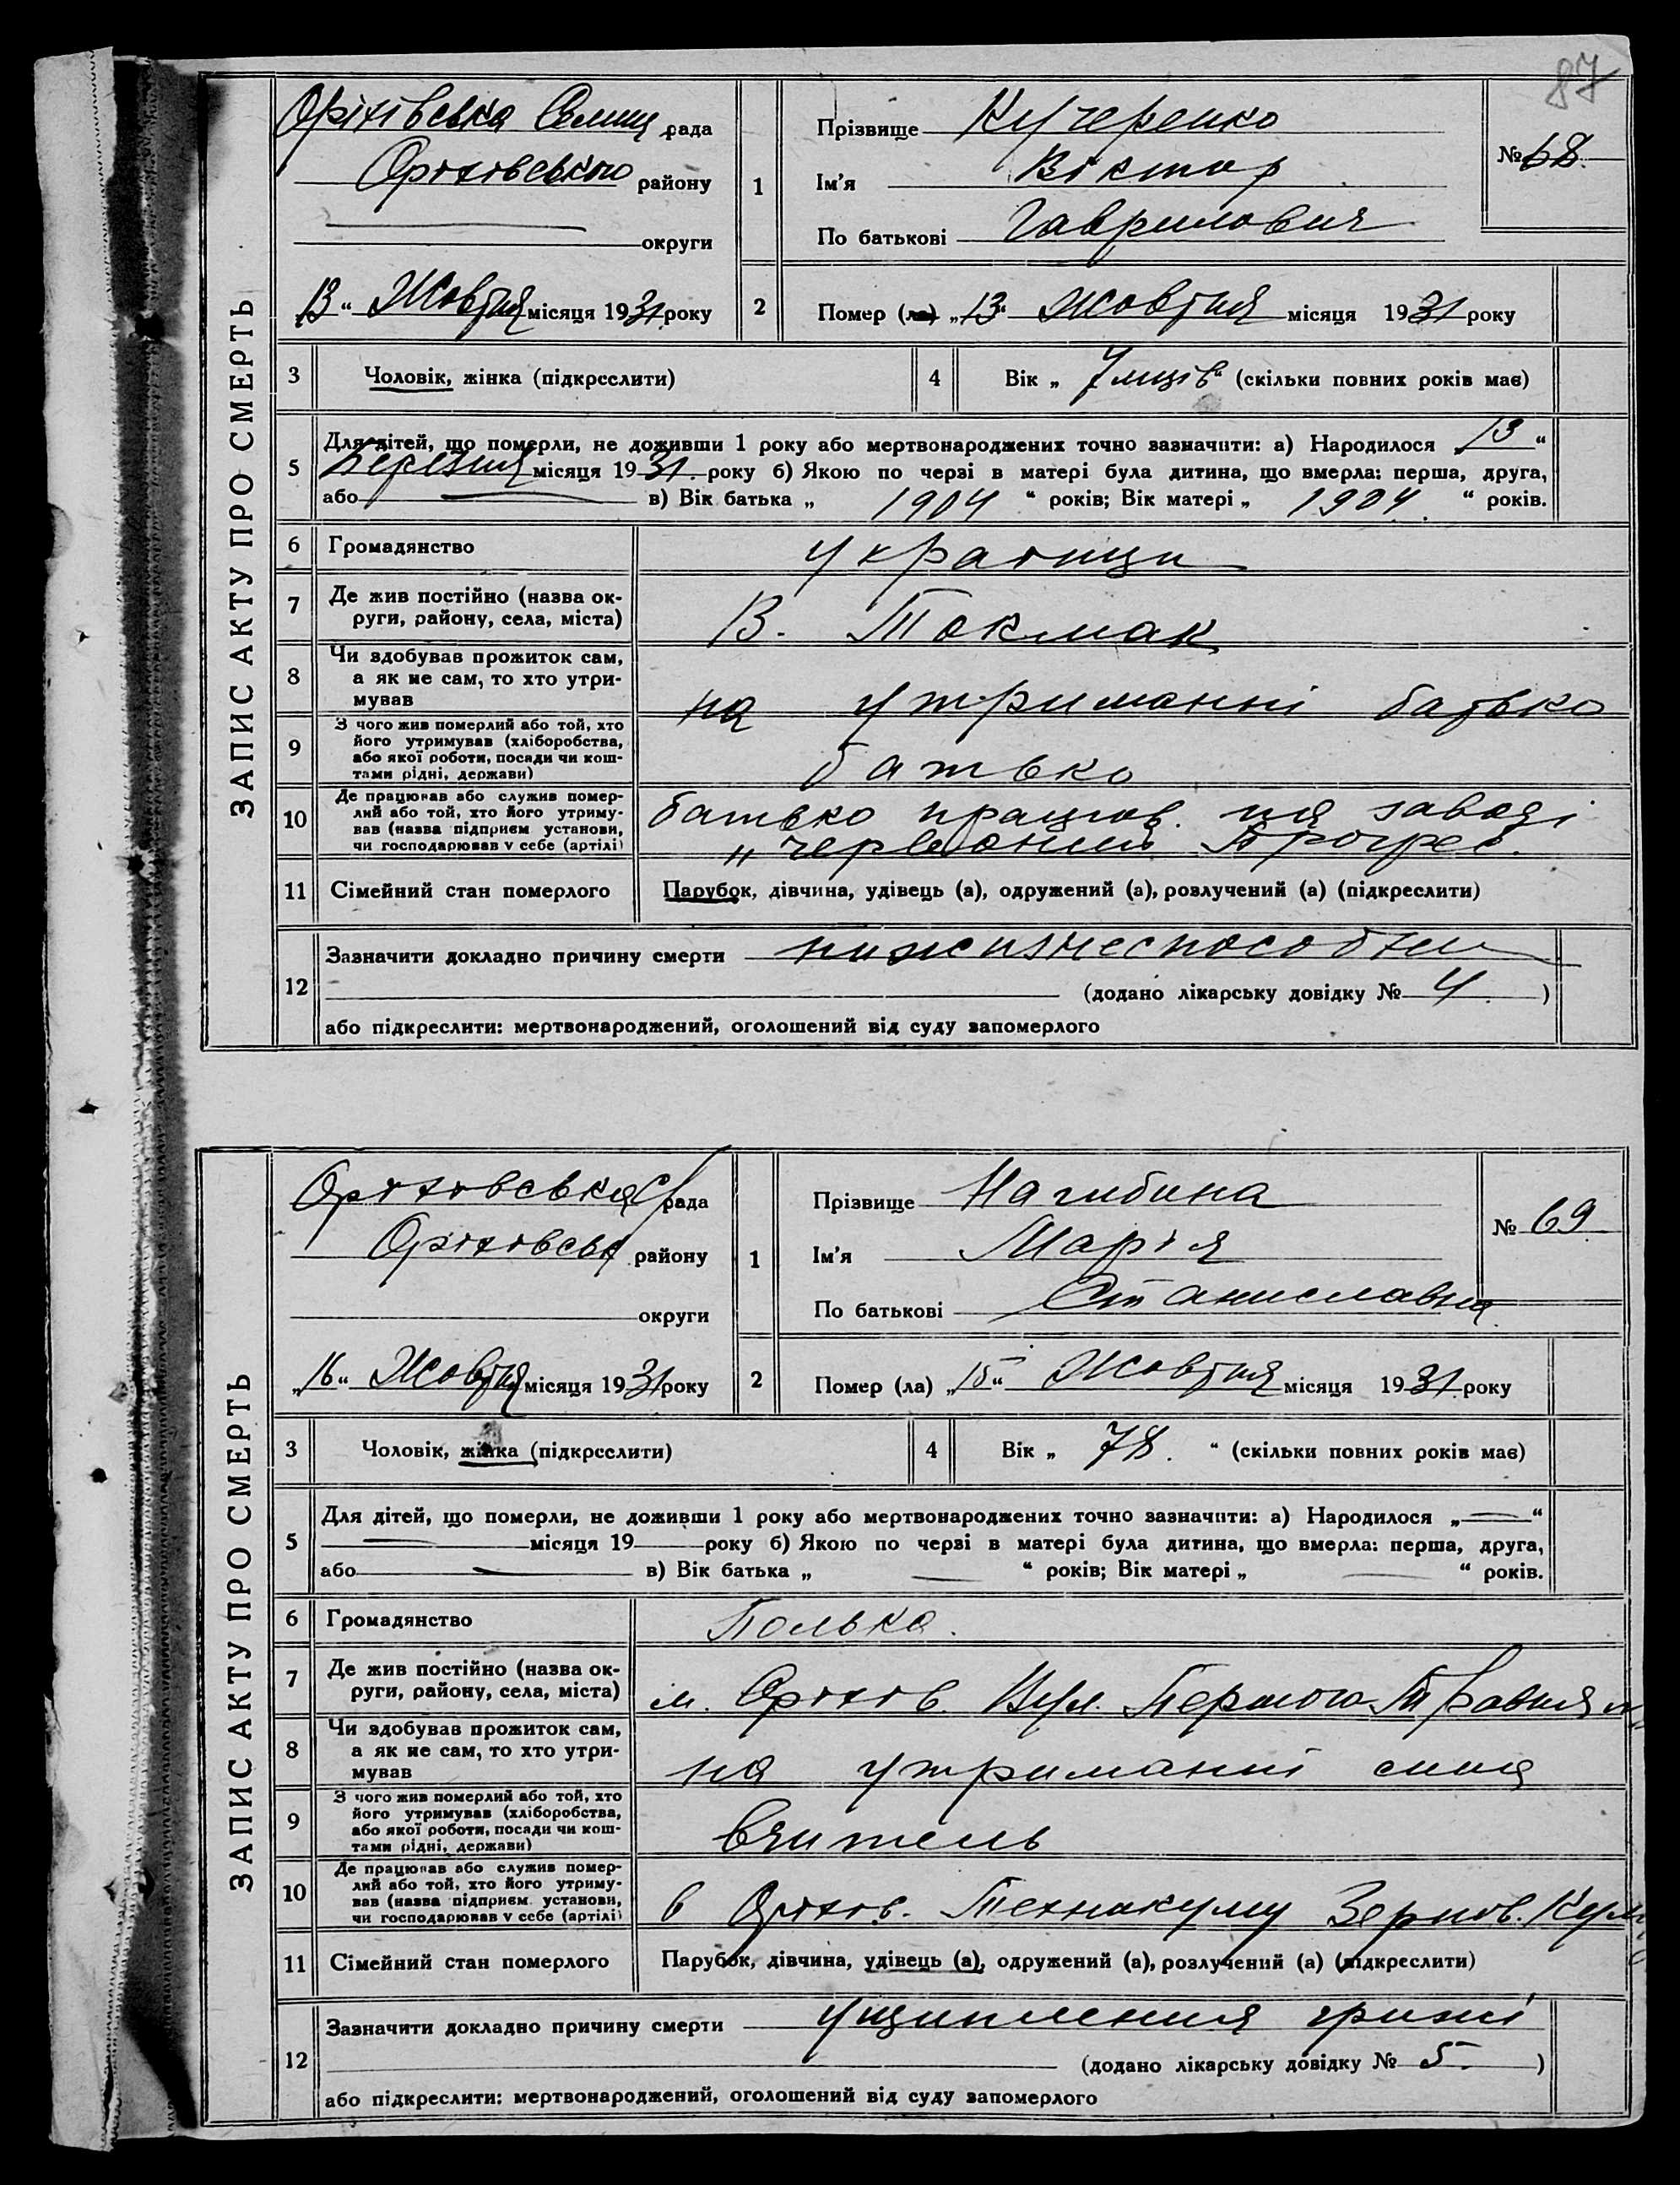 87
ЗАПИС АКТУ ПРО СМЕРТЬ
Оріхівська Селищ рада
Оріхівського району
округи
13 " Жовтня місяця 1931 року
1
Прізвище Кучеренко
Ім'я Віктор
По батькові Гаврилович
№ 68
2
Помер (ла) „13" Жовтня місяця 1931 року
3 Чоловік, жінка (підкреслити)
4 Вік „ 7 місців " (скільки повних років має)
5
Для дітей, що померли, не доживши 1 року або мертвонароджених точно зазначити: а) Народилося „13"
Березня місяця 1931 року б) Якою по черзі в матері була дитина, що вмерла: перша, друга,
або в) Вік батька „ 1904 " років; Вік матері „ 1904 " років.
6 Громадянство
українци
7 Де жив постійно (назва ок-
руги, району, села, міста)
В. Токмак
8 Чи здобував прожиток сам,
а як не сам, то хто утри-
мував
на утриманні батько
9 З чого жив померлий або той, хто
його утримував (хліборобства,
або якої роботи, посади чи кош-
тами рідні, держави)
батько
10 Де працював або служив помер-
лий або той, хто його утриму-
вав (назва підприєм. установи,
чи господарював у себе (артілі)
батько працюв. на заводі
„червоний Прогрес.
11 Сімейний стан померлого
Парубок, дівчина, удівець (а), одружений (а), розлучений (а) (підкреслити)
12
Зазначити докладно причину смерти
(додано лікарську довідку № 4. )
або підкреслити: мертвонароджений, оголошений від суду запомерлого
ЗАПИС АКТУ ПРО СМЕРТЬ
Оріховська С/рада
Оріховськ району
округи
„16" Жовтня місяця 1931 року
1
Прізвище Нагибина
Ім'я Марія
По батькові Станиславня
№ 69
2
Помер (ла) „15" Жовтня місяця 1931 року
3 Чоловік, жінка (підкреслити)
4 Вік „ 78. " (скільки повних років має)
5
Для дітей, що померли, не доживши 1 року або мертвонароджених точно зазначити: а) Народилося „ "
місяця 19 року б) Якою по черзі в матері була дитина, що вмерла: перша, друга,
або в) Вік батька „ " років; Вік матері „ " років.
6 Громадянство
Полька.
7 Де жив постійно (назва ок-
руги, району, села, міста)
м. Оріхов. Вул. Першого Травня
8 Чи здобував прожиток сам,
а як не сам, то хто утри-
мував
на утриманні сина
9 З чого жив померлий або той, хто
його утримував (хліборобства,
або якої роботи, посади чи кош-
тами рідні, держави)
вчитель
10 Де працював або служив помер-
лий або той, хто його утриму-
вав (назва підприєм. установи,
чи господарював у себе (артілі)
в Оріхов. Технакуму Зернов. Кул
11 Сімейний стан померлого
Парубок, дівчина, удівець (а), одружений (а), розлучений (а) (підкреслити)
12
Зазначити докладно причину смерти ущипления грижі
(додано лікарську довідку № 5. )
або підкреслити: мертвонароджений, оголошений від суду запомерлого